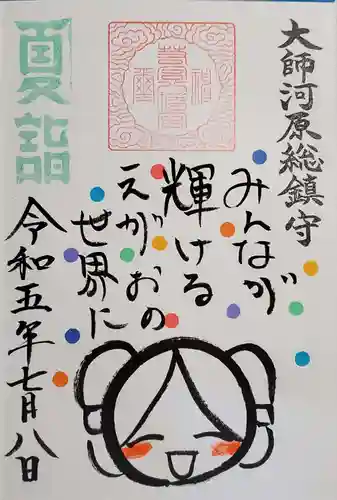 大師河原総鎮守
みんなが
輝ける
えがおの
世界に
夏詣
令和五年七月八日